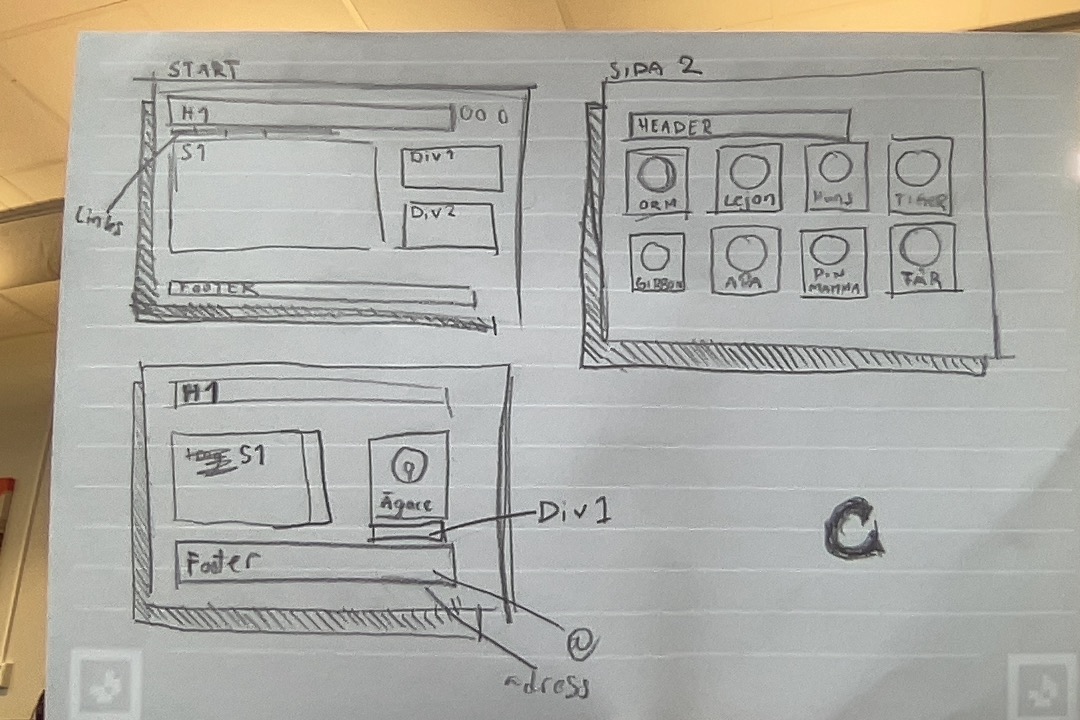 START
H1
Links
S1
Div1
Div2
FOOTER
SIDA 2
HEADER
ORM
Lejon
TIGER
GIBBON
APA
DIN
MAMMA
FÅR
H1
S1
Ägare
Div1
Footer
@
adress
C